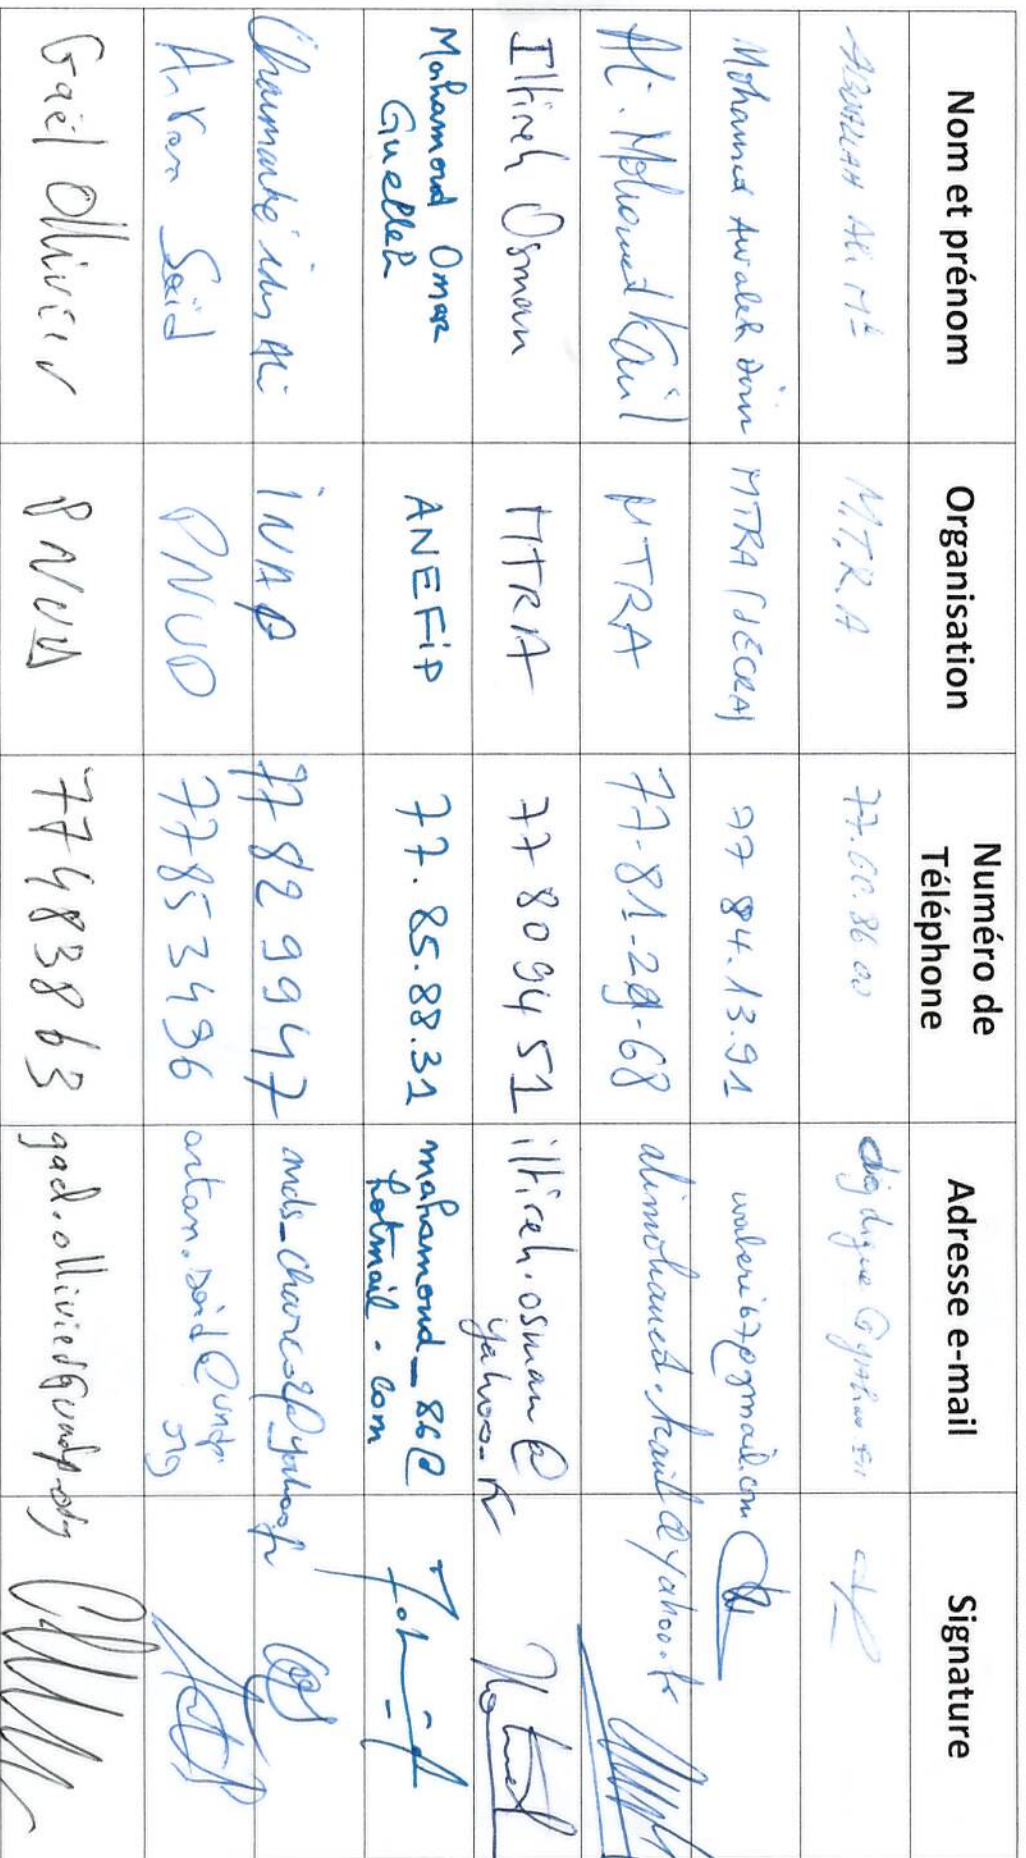 Nom et prénom Organisation Numéro de Téléphone Adresse e-mail Signature
Ali M.T.R.A 77.60.86
Mohamed Awaleh MTRA (SECRA) 77 84.13.91 waberi67@gmail.com
Ali. Mohamed Kamil MTRA 77-81-29-68 alimohamed.kamil@yahoo.fr
Iltireh Osman MTRA 77 80 94 51 iltireh.osman@
yahoo.fr
Mahamoud Omar ANEFiP 77.85.88.31 mahamoud_86@
Guelleh hotmail.com
Ali iNAP 77 82 99 47
Said PNUD 77 85 34 96 artan.said@undp.
org
Gaël Ollivier PNUD 77 48 38 63 gael.ollivier@undp.org